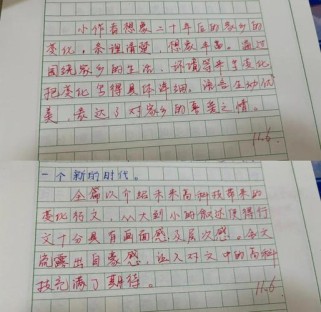 小作者想象二十年后的家乡的
变化，条理清楚，想象丰富。通过
围绕家乡的生活、环境等平生活化
把变化写得具体详细，语言生动优
美，表达了对家乡的喜爱之情。
11.6.
一个新的时代。
全篇以介绍未来高科技带来的
变化行文，从大到小的叙述使得行
文十分具有画面感及层次感。全文
流露出自豪感，让人对文中的高科
技充满了期待。
11.6.